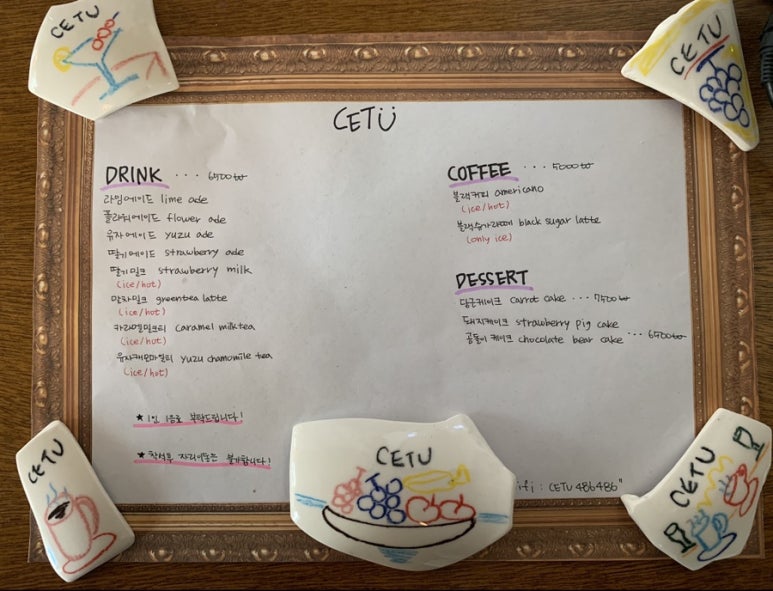 CETU
CETU
CETÜ
DRINK ... 6500₩
라임에이드 lime ade
플라워에이드 flower ade
유자에이드 yuzu ade
딸기에이드 strawberry ade
딸기밀크 strawberry milk
(ice/hot)
말차밀크 greentea latte
(ice/hot)
카라멜밀크티 caramel milktea
(ice/hot)
유자캐모마일티 yuzu chamomile tea
(ice/hot)
★ 1인 1음료 부탁드립니다!
★ 착석후 자리이동은 불가합니다!
COFFEE ... 5000₩
블랙커피 americano
(ice/hot)
블랙슈가라떼 black sugar latte
(only ice)
DESSERT
당근케이크 carrot cake ... 7500₩
돼지케이크 strawberry pig cake
곰돌이케이크 chocolate bear cake ... 6500₩
ifi : CETU 486486"
CETU
CETU
CETU